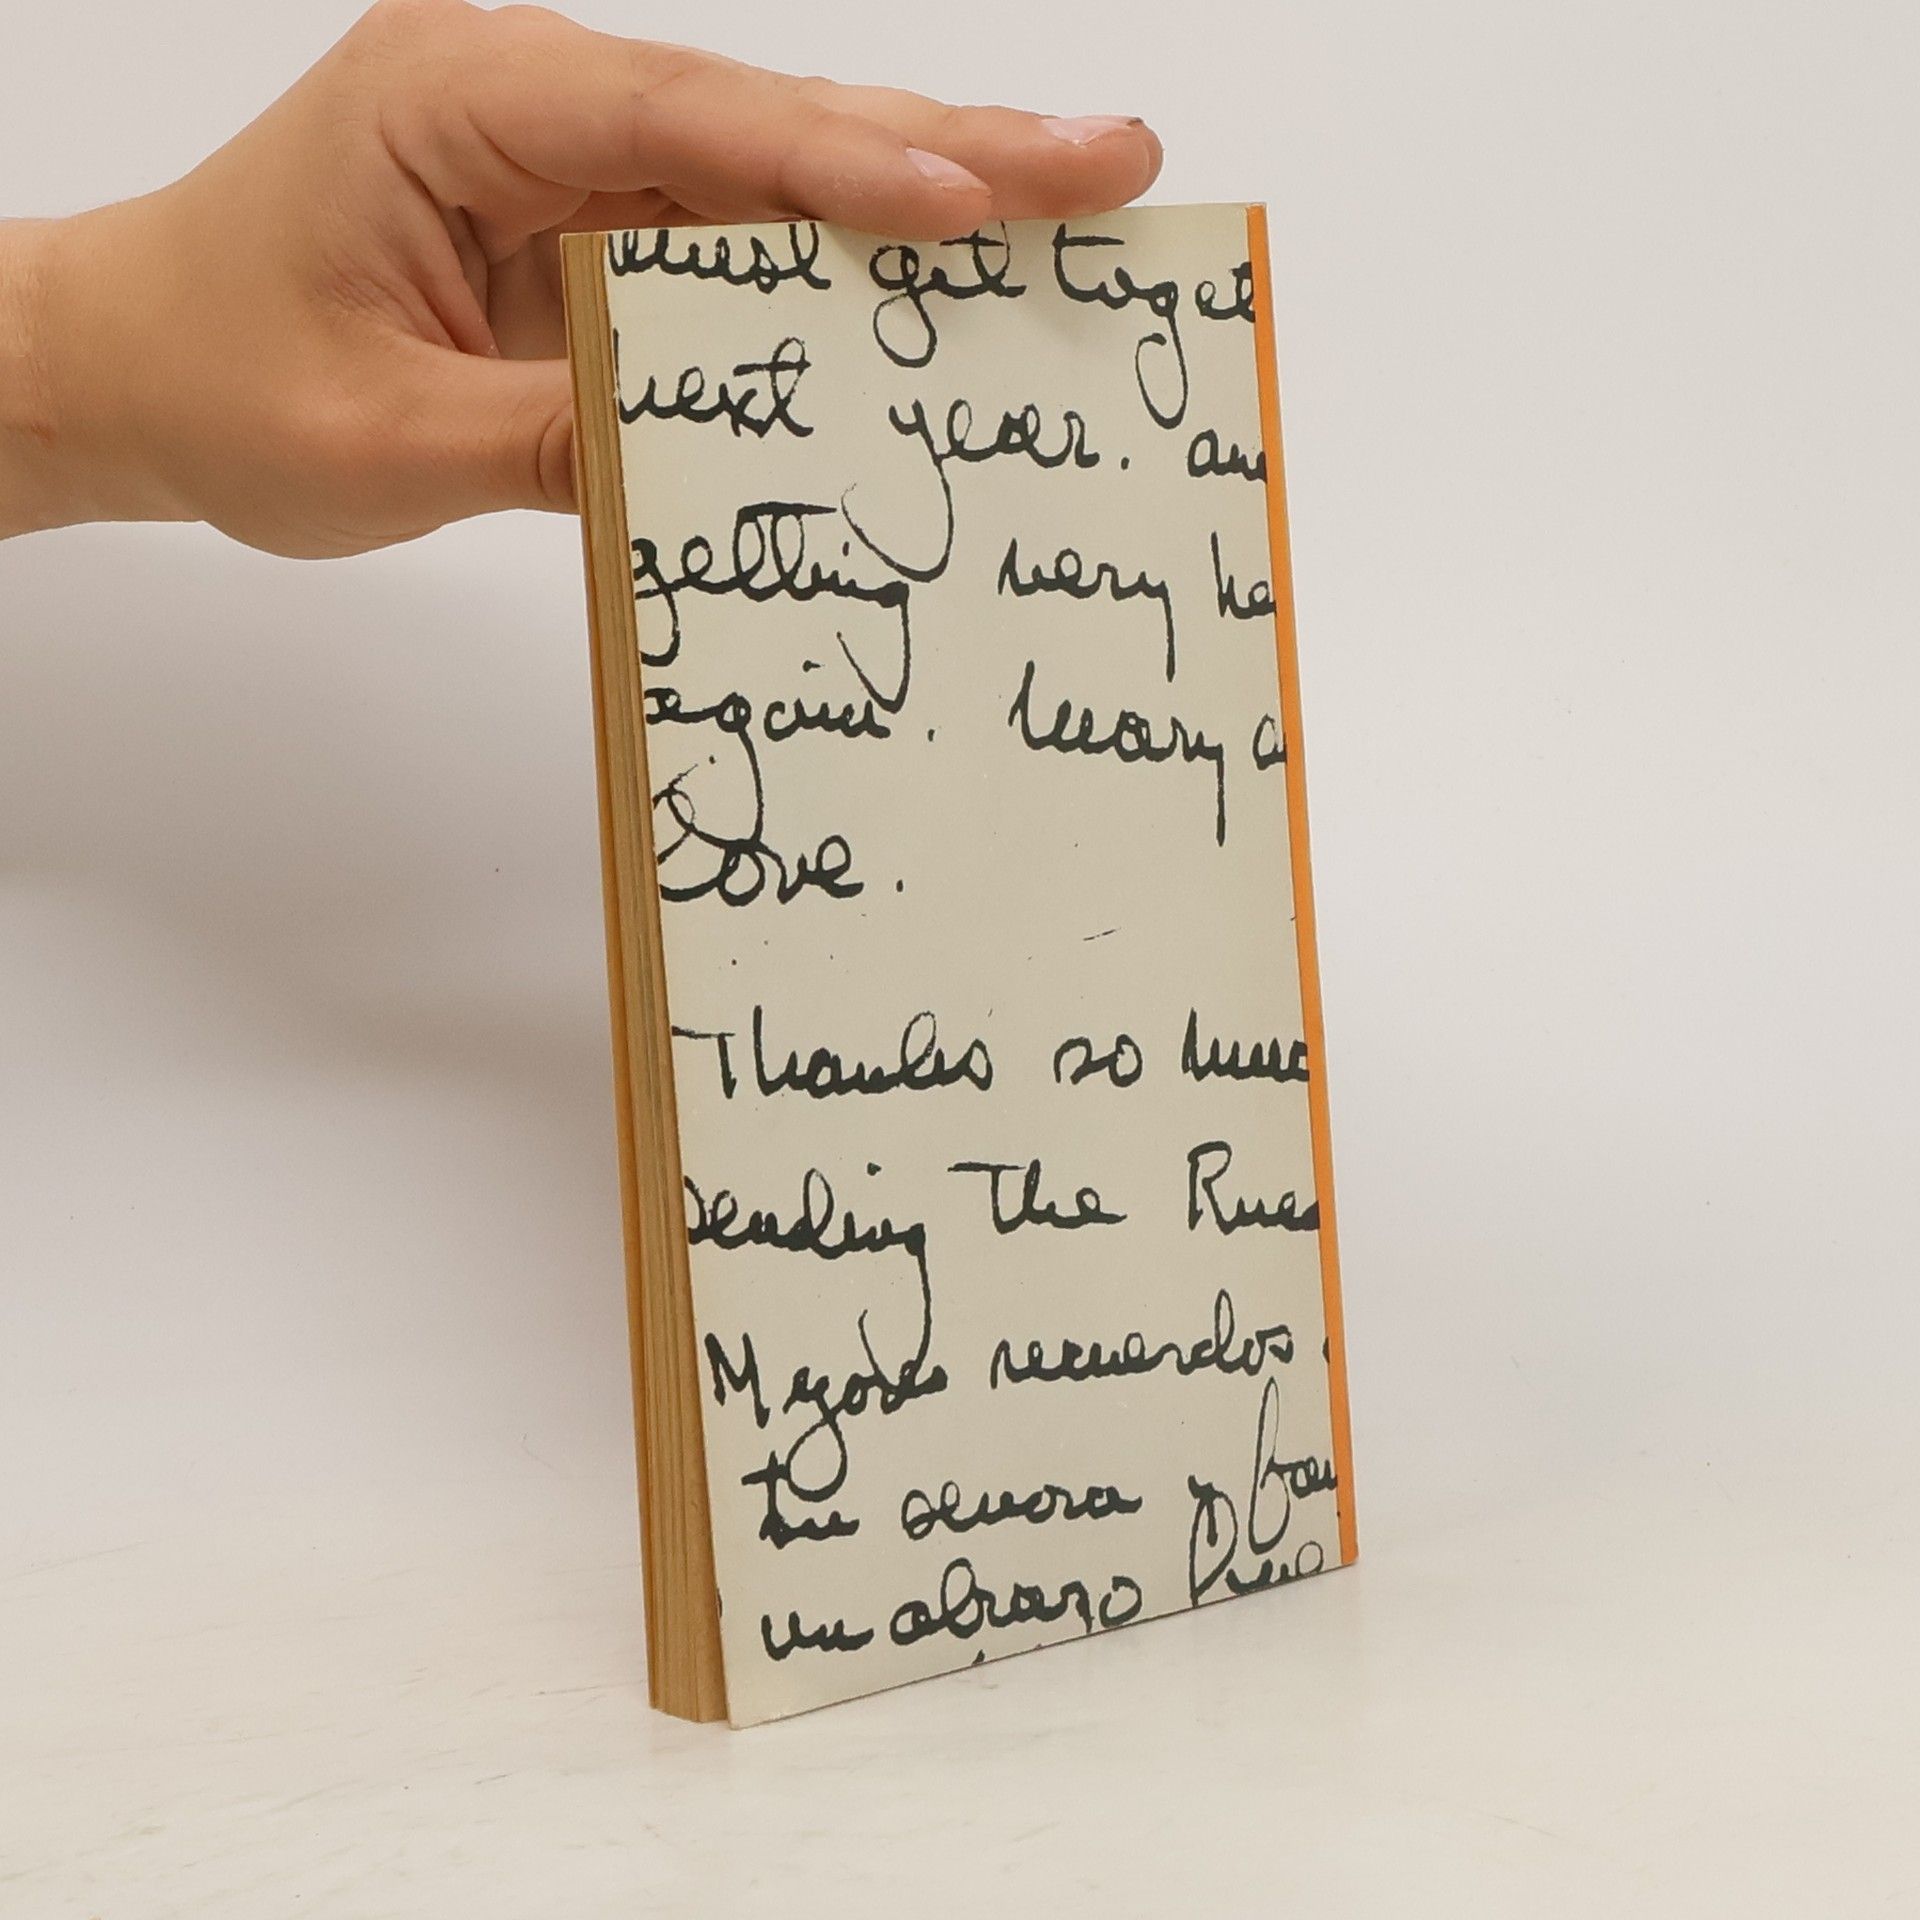 must get toget
next year. and
getting very he
again. Mary a
love.
Thanks so muc
sending the Rue
Mejores recuerdos
tu senora y fam
un abrazo